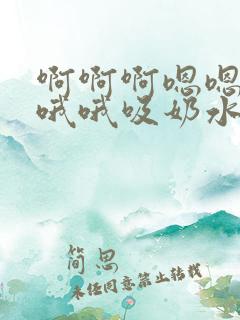 啊啊啊嗯嗯
哦哦吸奶水
简思
未经同意禁止转载